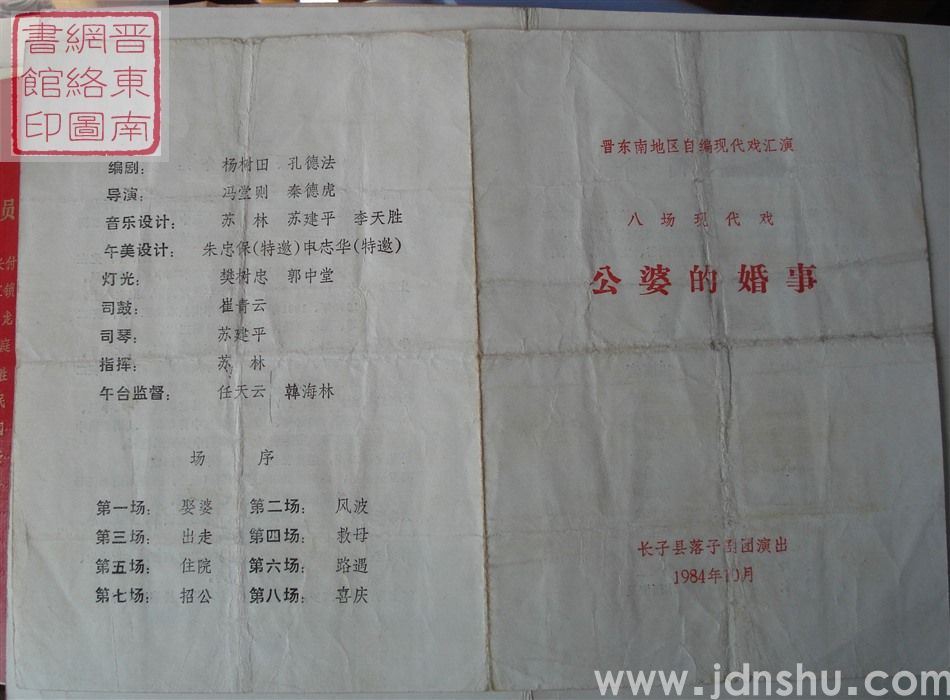 晋東南
網絡圖
書館印
编剧： 杨树田 孔德法
导演： 冯堂则 秦德虎
音乐设计： 苏林 苏建平 李天胜
午美设计： 朱忠保(特邀)申志华(特邀)
灯光： 樊树忠 郭中堂
司鼓： 崔青云
司琴： 苏建平
指挥： 苏林
午台监督： 任天云 韓海林
场序
第一场： 娶婆 第二场： 风波
第三场： 出走 第四场： 救母
第五场： 住院 第六场： 路遇
第七场： 招公 第八场： 喜庆
晋东南地区自编现代戏汇演
八场现代戏
公婆的婚事
长子县落子剧团演出
1984年10月
员
付
镇
龙
庭
胜
民
www.jdnshu.com